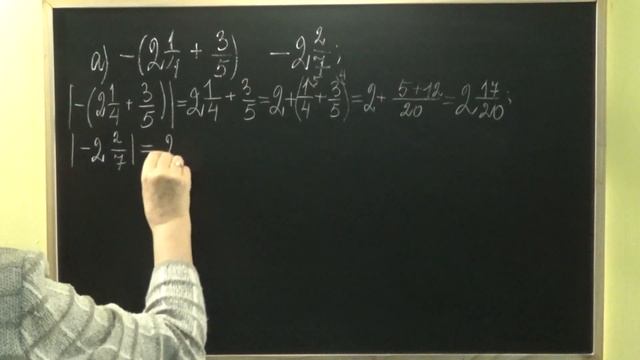 а) -(2 1/4 + 3/5) -2 2/7;
|-(2 1/4 + 3/5)| = 2 1/4 + 3/5 = 2 + (1/4 + 3/5) = 2 + (5+12)/20 = 2 17/20;
|-2 2/7| = 2